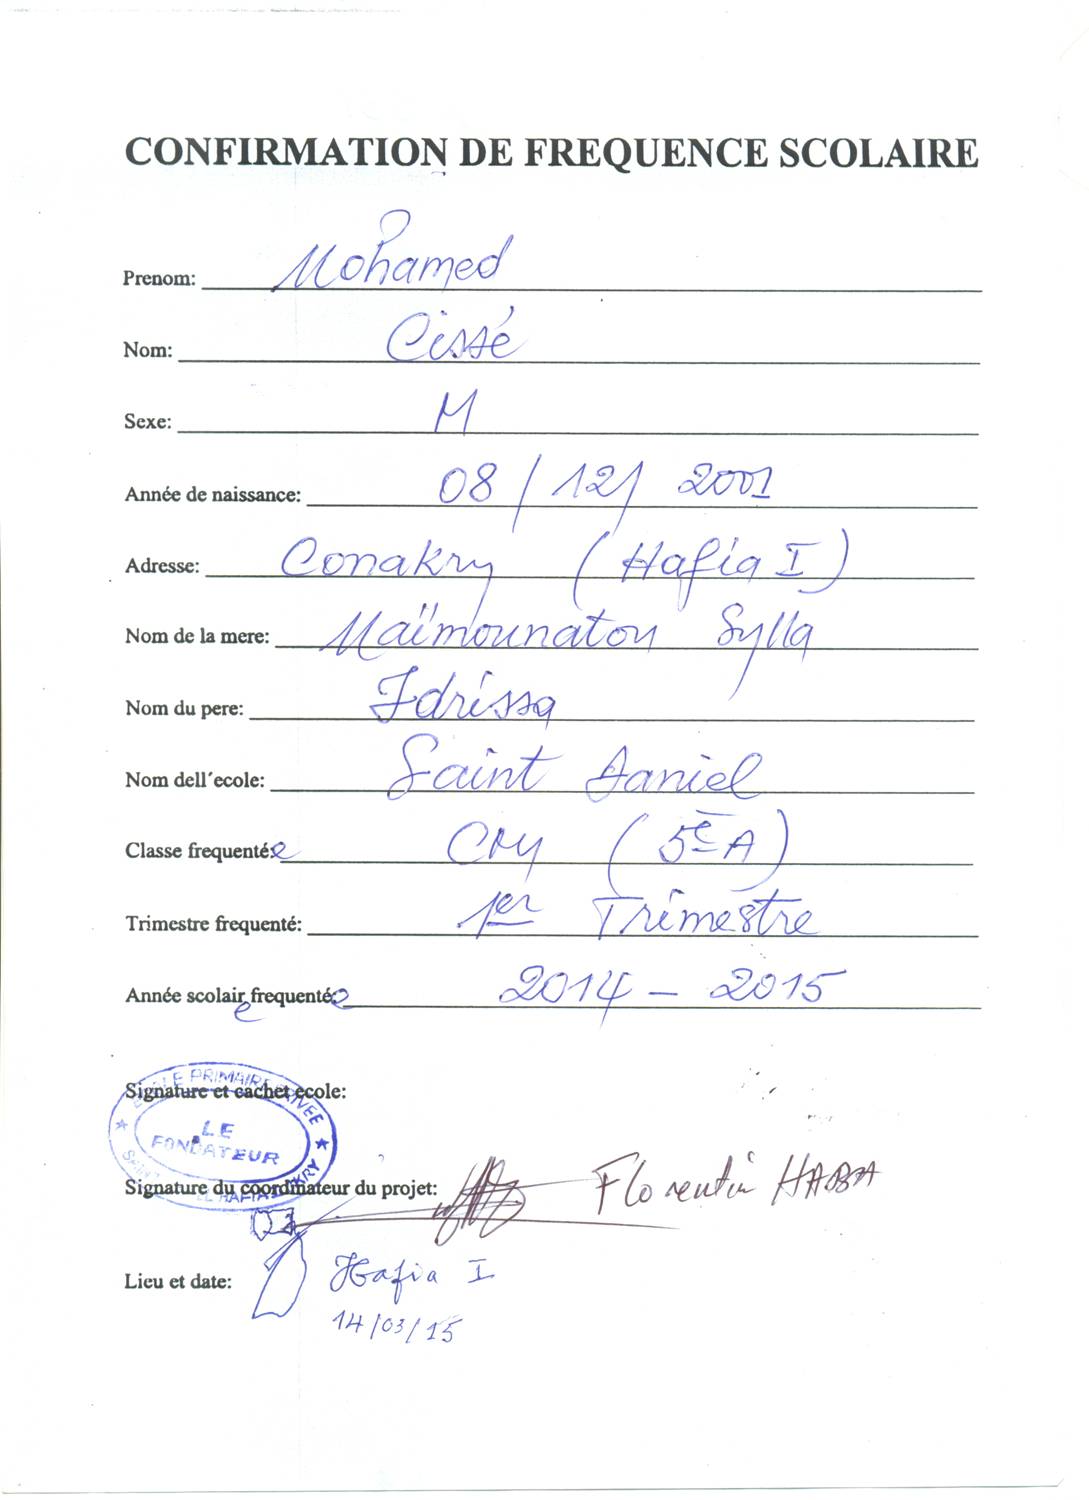 CONFIRMATION DE FREQUENCE SCOLAIRE
Prenom: Mohamed
Nom: Cissé
Sexe: M
Année de naissance: 08/12/2001
Adresse: Conakry (Hafia I)
Nom de la mere: Maïmounatou Sylla
Nom du pere: Idrissa
Nom dell´ecole: Saint Daniel
Classe frequentée: CM1 (5e A)
Trimestre frequenté: 1er Trimestre
Année scolaire frequentée: 2014 - 2015
Signature et cachet ecole:
ECOLE PRIMAIRE PRIVEE
LE
FONDATEUR
Signature du coordinateur du projet: Florentin HABA
Lieu et date: Hafia I
14/03/15